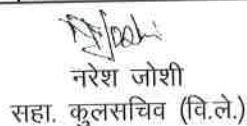 नरेश जोशी
सहा. कुलसचिव (वि.ले.)